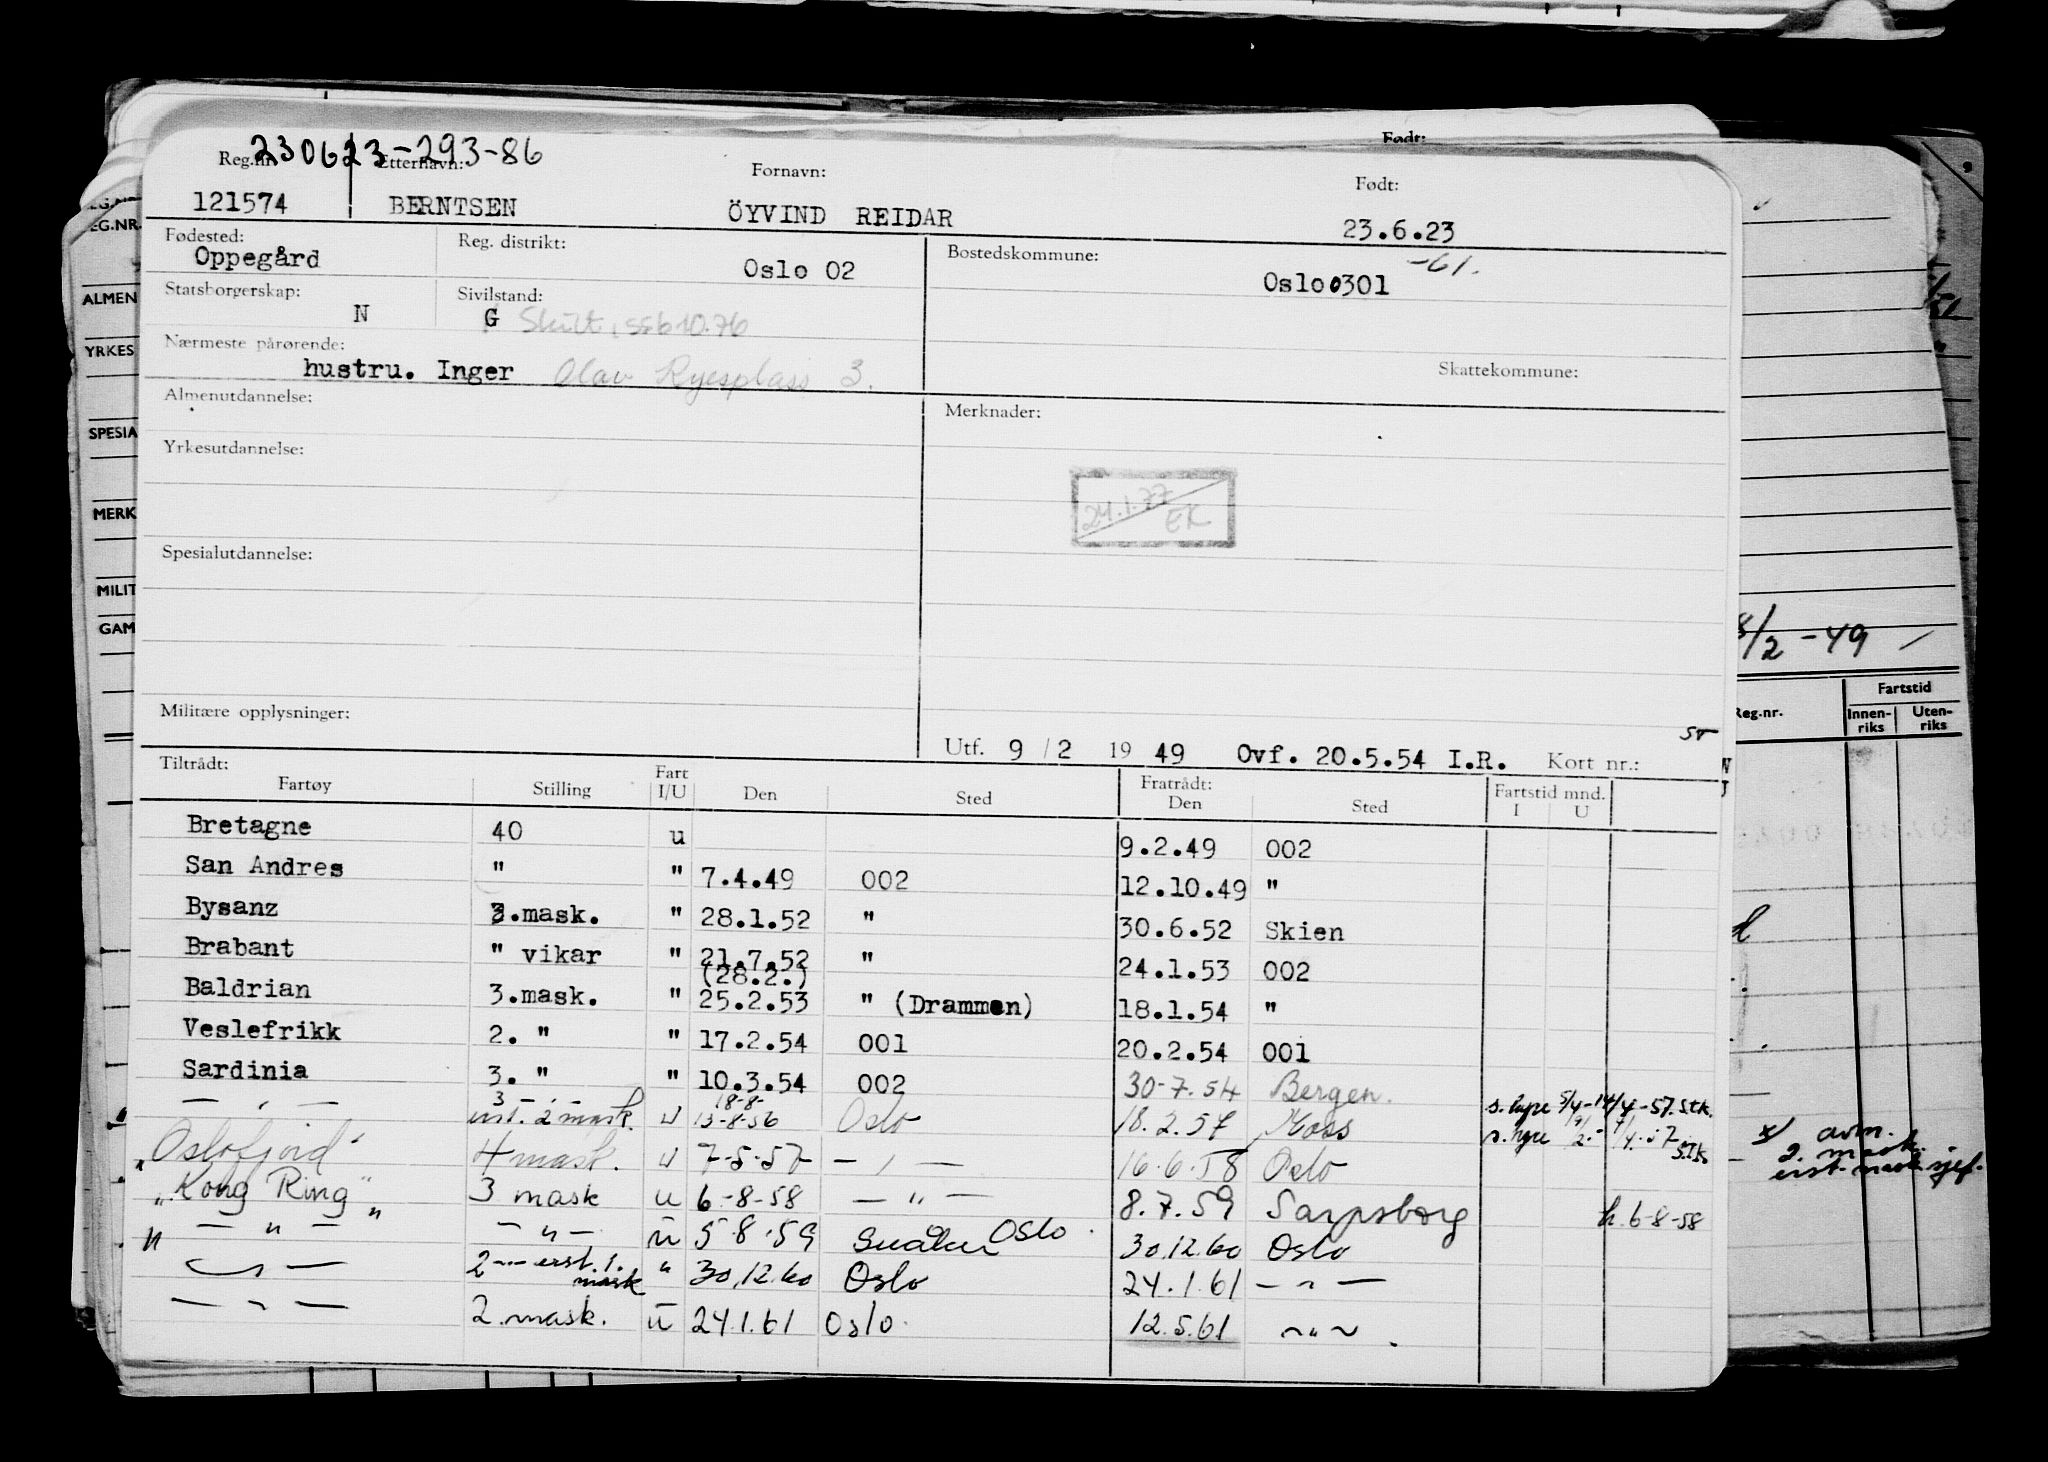 Født:
230623-293-86
Reg.nr. Etternavn: Fornavn: Født:
121574 BERNTSEN ÖYVIND REIDAR 23.6.23
Fødested: Reg. distrikt: Bostedskommune: -61.
Oppegård Oslo 02 Oslo 0301
Statsborgerskap: Sivilstand:
N G Skilt, ssb 10.76
Nærmeste pårørende: Skattekommune:
hustru. Inger Olav Ryesplass 3.
Almenutdannelse: Merknader:
Yrkesutdannelse:
24.1.77
EK
Spesialutdannelse:
Militære opplysninger:
Utf. 9 / 2 19 49 Ovf. 20.5.54 I.R. Kort nr.:
Tiltrådt: Fratrådt:
Fartøy Stilling Fart I/U Den Sted Den Sted Fartstid mnd. I U
Bretagne 40 u 9.2.49 002
San Andres " " 7.4.49 002 12.10.49 "
Bysanz 3.mask. " 28.1.52 " 30.6.52 Skien
Brabant " vikar " 21.7.52 " 24.1.53 002
(28.2.)
Baldrian 3.mask. " 25.2.53 " (Drammen) 18.1.54 "
Veslefrikk 2. " " 17.2.54 001 20.2.54 001
Sardinia 3. " " 10.3.54 002 30-7.54 Bergen.
— " — erst. 2 mask. u 13-8-56 Oslo 18.2.57 Moss
18-8-
"Oslofjord" 4 mask. u 7-5-57 — " — 16.6.58 Oslo
"Kong Ring" 3 mask u 6-8-58 — " — 8.7.59 Sarpsborg h. 6-8-58
" — " — — " — u 5.8.59 Oslo. 30.12.60 Oslo
— " — 2 — erst. 1. mask " 30.12.60 Oslo 24.1.61 — " —
— " — 2. mask. u 24.1.61 Oslo. 12.5.61 — " —
EG.NR.
ALMEN
YRKES
SPESIA
MERK
MILIT
GAM
8/2 -49
Fartstid
Reg.nr. Innenriks Utenriks
x/ avm.
2. mask.
erst. mask sjef.